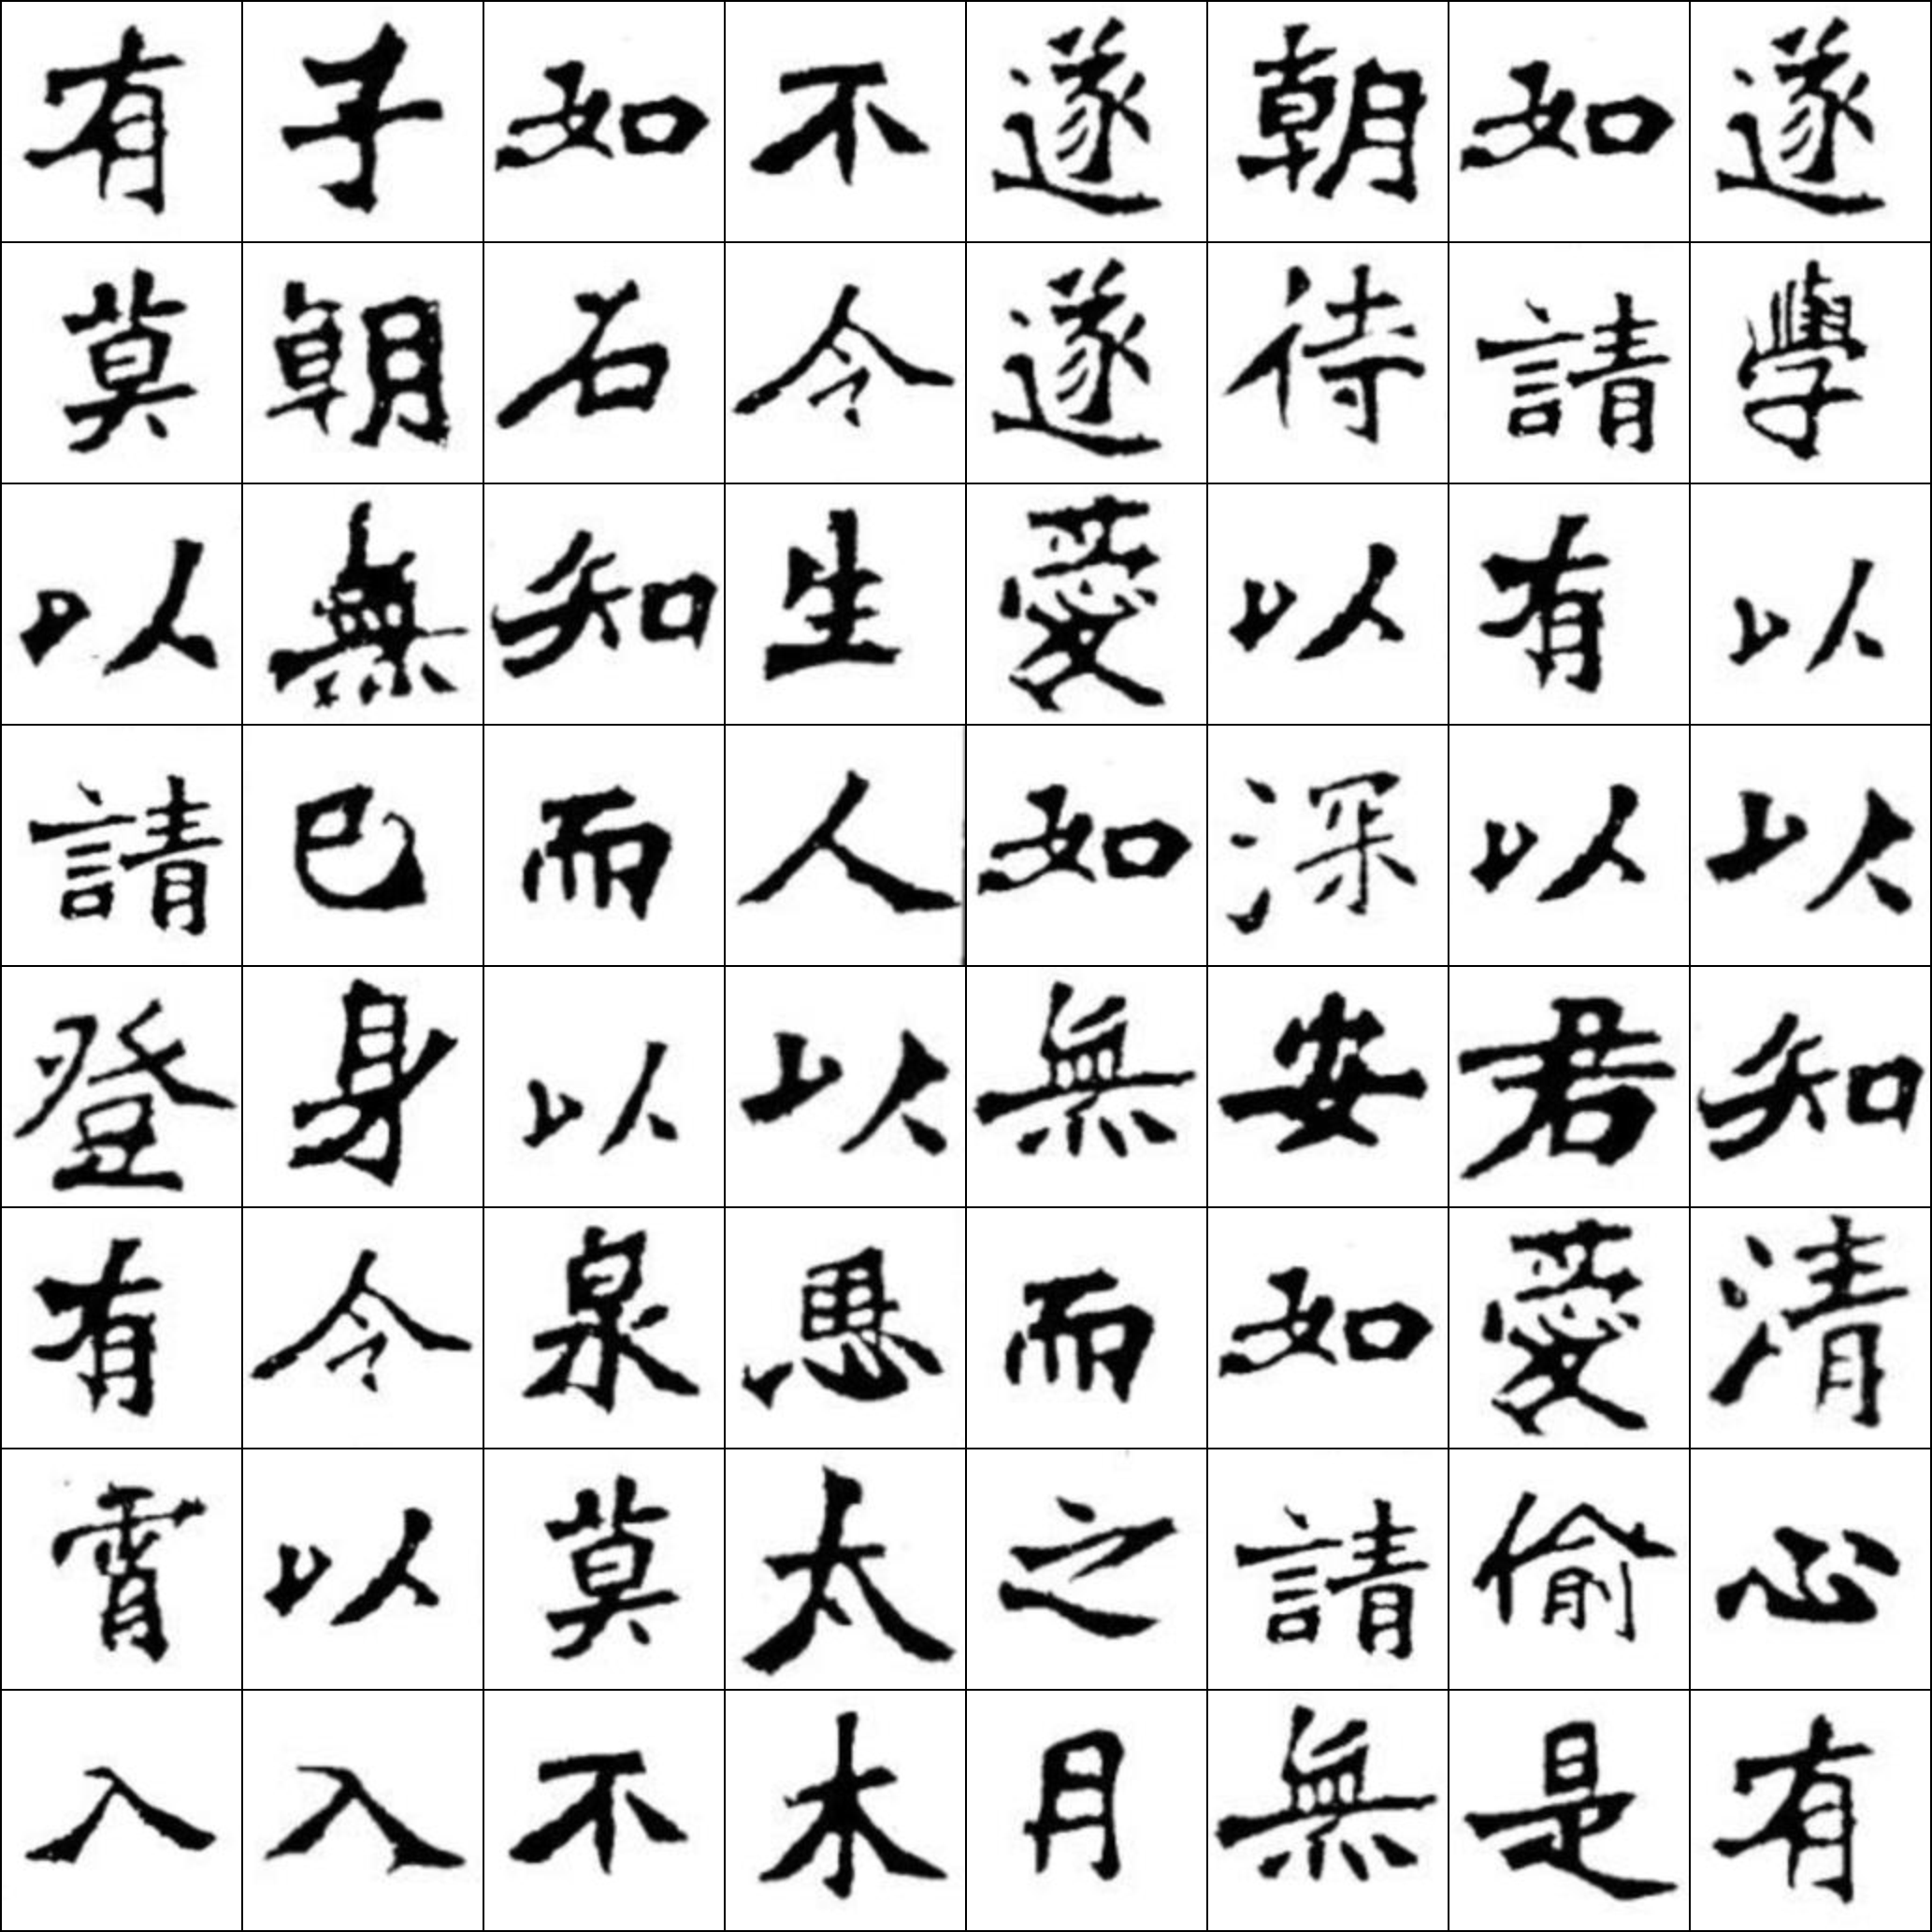 有子如不遂朝如遂
莫朝石令遂待請學
以無知生愛以有以
請已而人如深以以
登身以以無安君知
有令泉愚而如愛清
霄以莫太之請偷心
入入不木月無是有